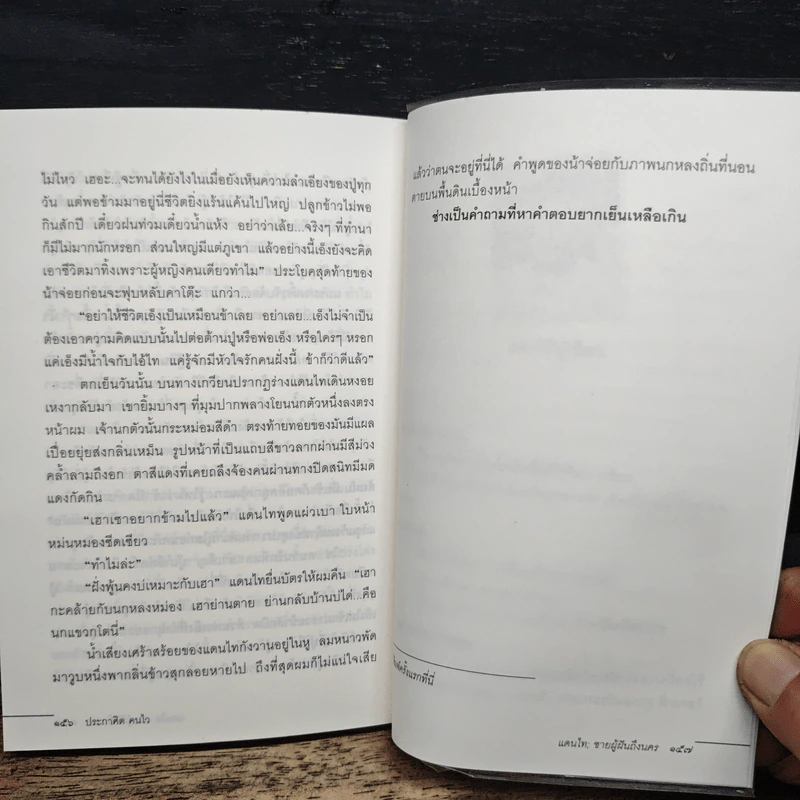 ไม่ไหว เฮอะ...จะทนได้ยังไงในเมื่อยังเห็นความลำเอียงของปู่ทุก
วัน แต่พอข้ามมาอยู่นี่ชีวิตยิ่งแร้นแค้นไปใหญ่ ปลูกข้าวไม่พอ
กินสักปี เดี๋ยวฝนท่วมเดี๋ยวน้ำแห้ง อย่าว่าเล้ย...จริงๆ ที่ทำนา
ก็มีไม่มากนักหรอก ส่วนใหญ่มีแต่ภูเขา แล้วอย่างนี้เอ็งยังจะคิด
เอาชีวิตมาทิ้งเพราะผู้หญิงคนเดียวทำไม” ประโยคสุดท้ายของ
น้าจ่อยก่อนจะฟุบหลับคาโต๊ะ แกว่า...
“อย่าให้ชีวิตเอ็งเป็นเหมือนข้าเลย อย่าเลย...เอ็งไม่จำเป็น
ต้องเอาความคิดแบบนั้นไปต่อต้านปู่หรือพ่อเอ็ง หรือใครๆ หรอก
แค่เอ็งมีน้ำใจกับไอ้ไท แค่รู้จักมีหัวใจรักคนฝั่งนี้ ข้าก็ว่าดีแล้ว”
ตกเย็นวันนั้น บนทางเกวียนปรากฏร่างแดนไทเดินหงอย
เหงากลับมา เขายิ้มบางๆ ที่มุมปากพลางโยนนกตัวหนึ่งลงตรง
หน้าผม เจ้านกตัวนั้นกระหม่อมสีดำ ตรงท้ายทอยของมันมีแผล
เปื่อยยุ่ยส่งกลิ่นเหม็น รูปหน้าที่เป็นแถบสีขาวลากผ่านมีสีม่วง
คล้ำลามถึงอก ตาสีแดงที่เคยถลึงจ้องคนผ่านทางปิดสนิทมีมด
แดงกัดกิน
“เฮาเซาอยากข้ามไปแล้ว” แดนไทพูดแผ่วเบา ใบหน้า
หม่นหมองซีดเซียว
“ทำไมล่ะ”
“ฝั่งพู้นคงบ่เหมาะกับเฮา” แดนไทยื่นบัตรให้ผมคืน “เฮา
กะคล้ายกับนกหลงหม่อง เฮาย่านตาย ย่านกลับบ้านบ่ได้...คือ
นกแขวกโตนี่”
น้ำเสียงเศร้าสร้อยของแดนไทกังวานอยู่ในหู ลมหนาวพัด
มาวูบหนึ่งพากลิ่นข้าวสุกลอยหายไป ถึงที่สุดผมก็ไม่แน่ใจเสีย
๑๕๖ ประกาศิต คนไว
แล้วว่าตนจะอยู่ที่นี่ได้ คำพูดของน้าจ่อยกับภาพนกหลงถิ่นที่นอน
ตายบนพื้นดินเบื้องหน้า
ช่างเป็นคำถามที่หาคำตอบยากเย็นเหลือเกิน
ครั้งแรกที่นี่
แดนไท; ชายผู้ฝันถึงนคร ๑๕๗